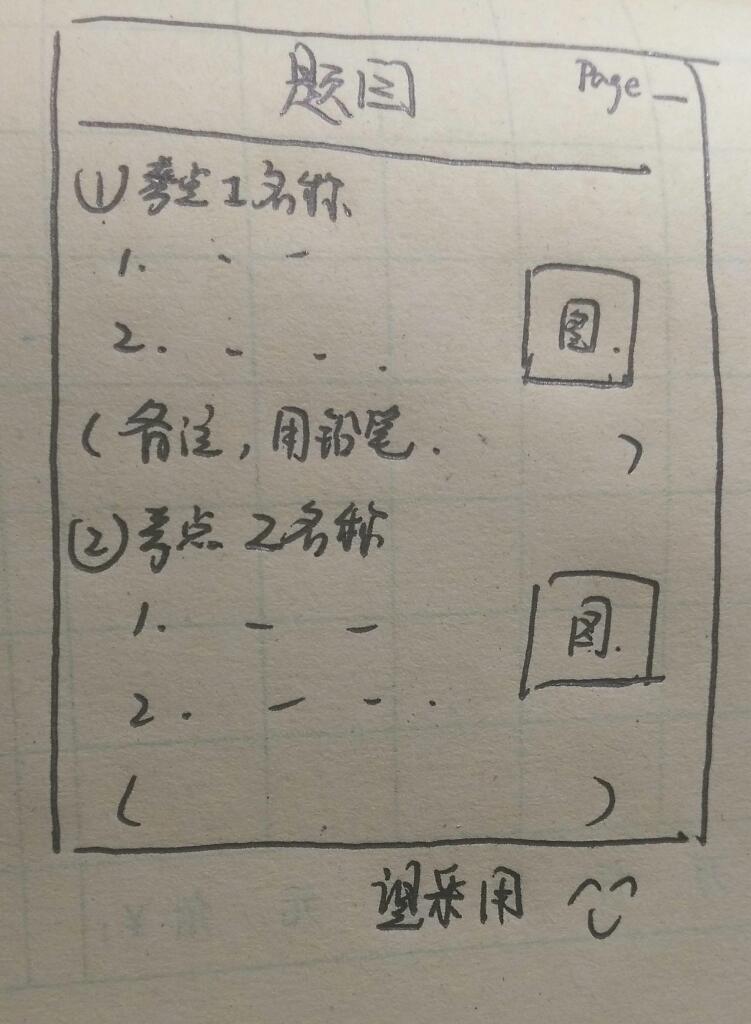 题图 Page _
① 考点1名称
1. - -
2. - - .
图.
(备注,用铅笔. )
② 考点2名称
1. - -
图.
2. - - .
( )
望采用